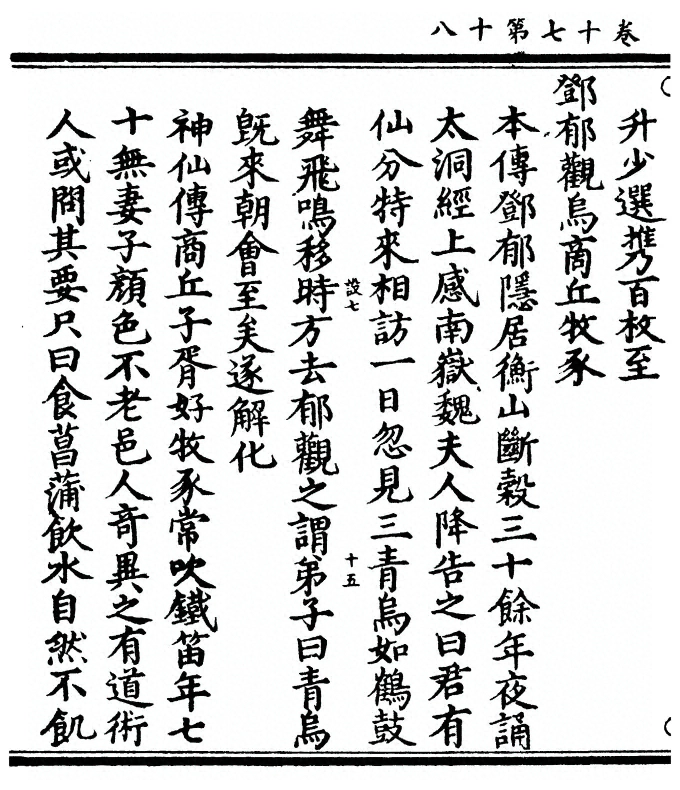 卷十七第十八
升少選擕乃百枚至
鄧郁觀烏商丘牧豕
本傳鄧郁隱居衡山斷穀三十餘年夜誦
太洞經上感南嶽魏夫人降告之曰君有
仙分特來相訪一日忽見三青烏如鶴鼓
舞飛鳴移時方去郁觀之謂弟子曰青烏
設七
十五
旣來朝會至矣遂解化
神仙傳商丘子胥好牧豕常吹鐵笛年七
十無妻子顏色不老邑人奇異之有道術
人或問其要尺曰食菖蒲飲水自然不飢